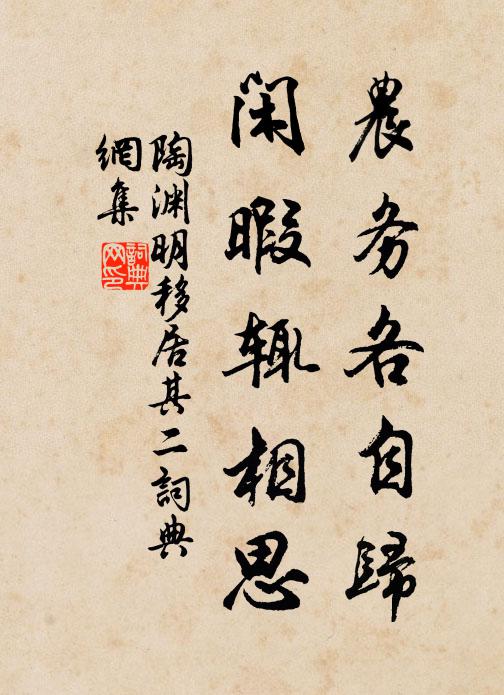 農务各自歸
闲暇辄相思
陶渊明移居其二詞典
網集
詞典
网印